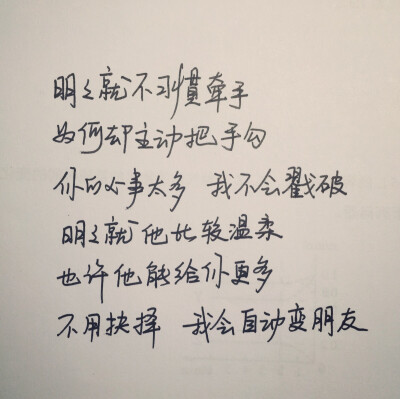 明明就不习惯牵手
为何却主动把手勾
你的心事太多 我不会戳破
明明就他比较温柔
也许他能给你更多
不用抉择 我会自动变朋友